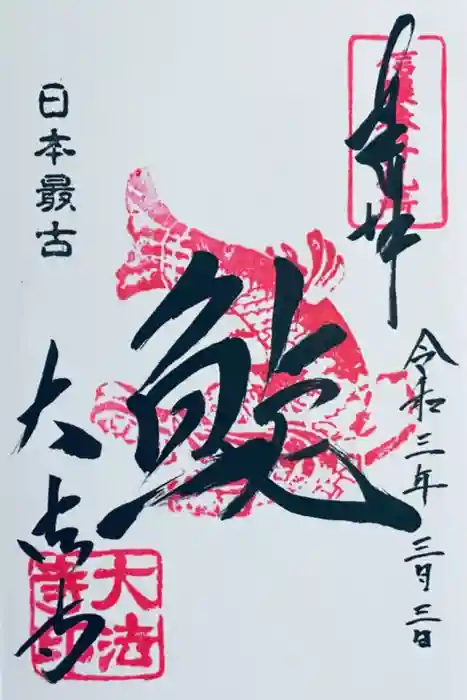 奉拝
令和三年 三月三日
鮫
日本最古
大法寺
大法
寺印